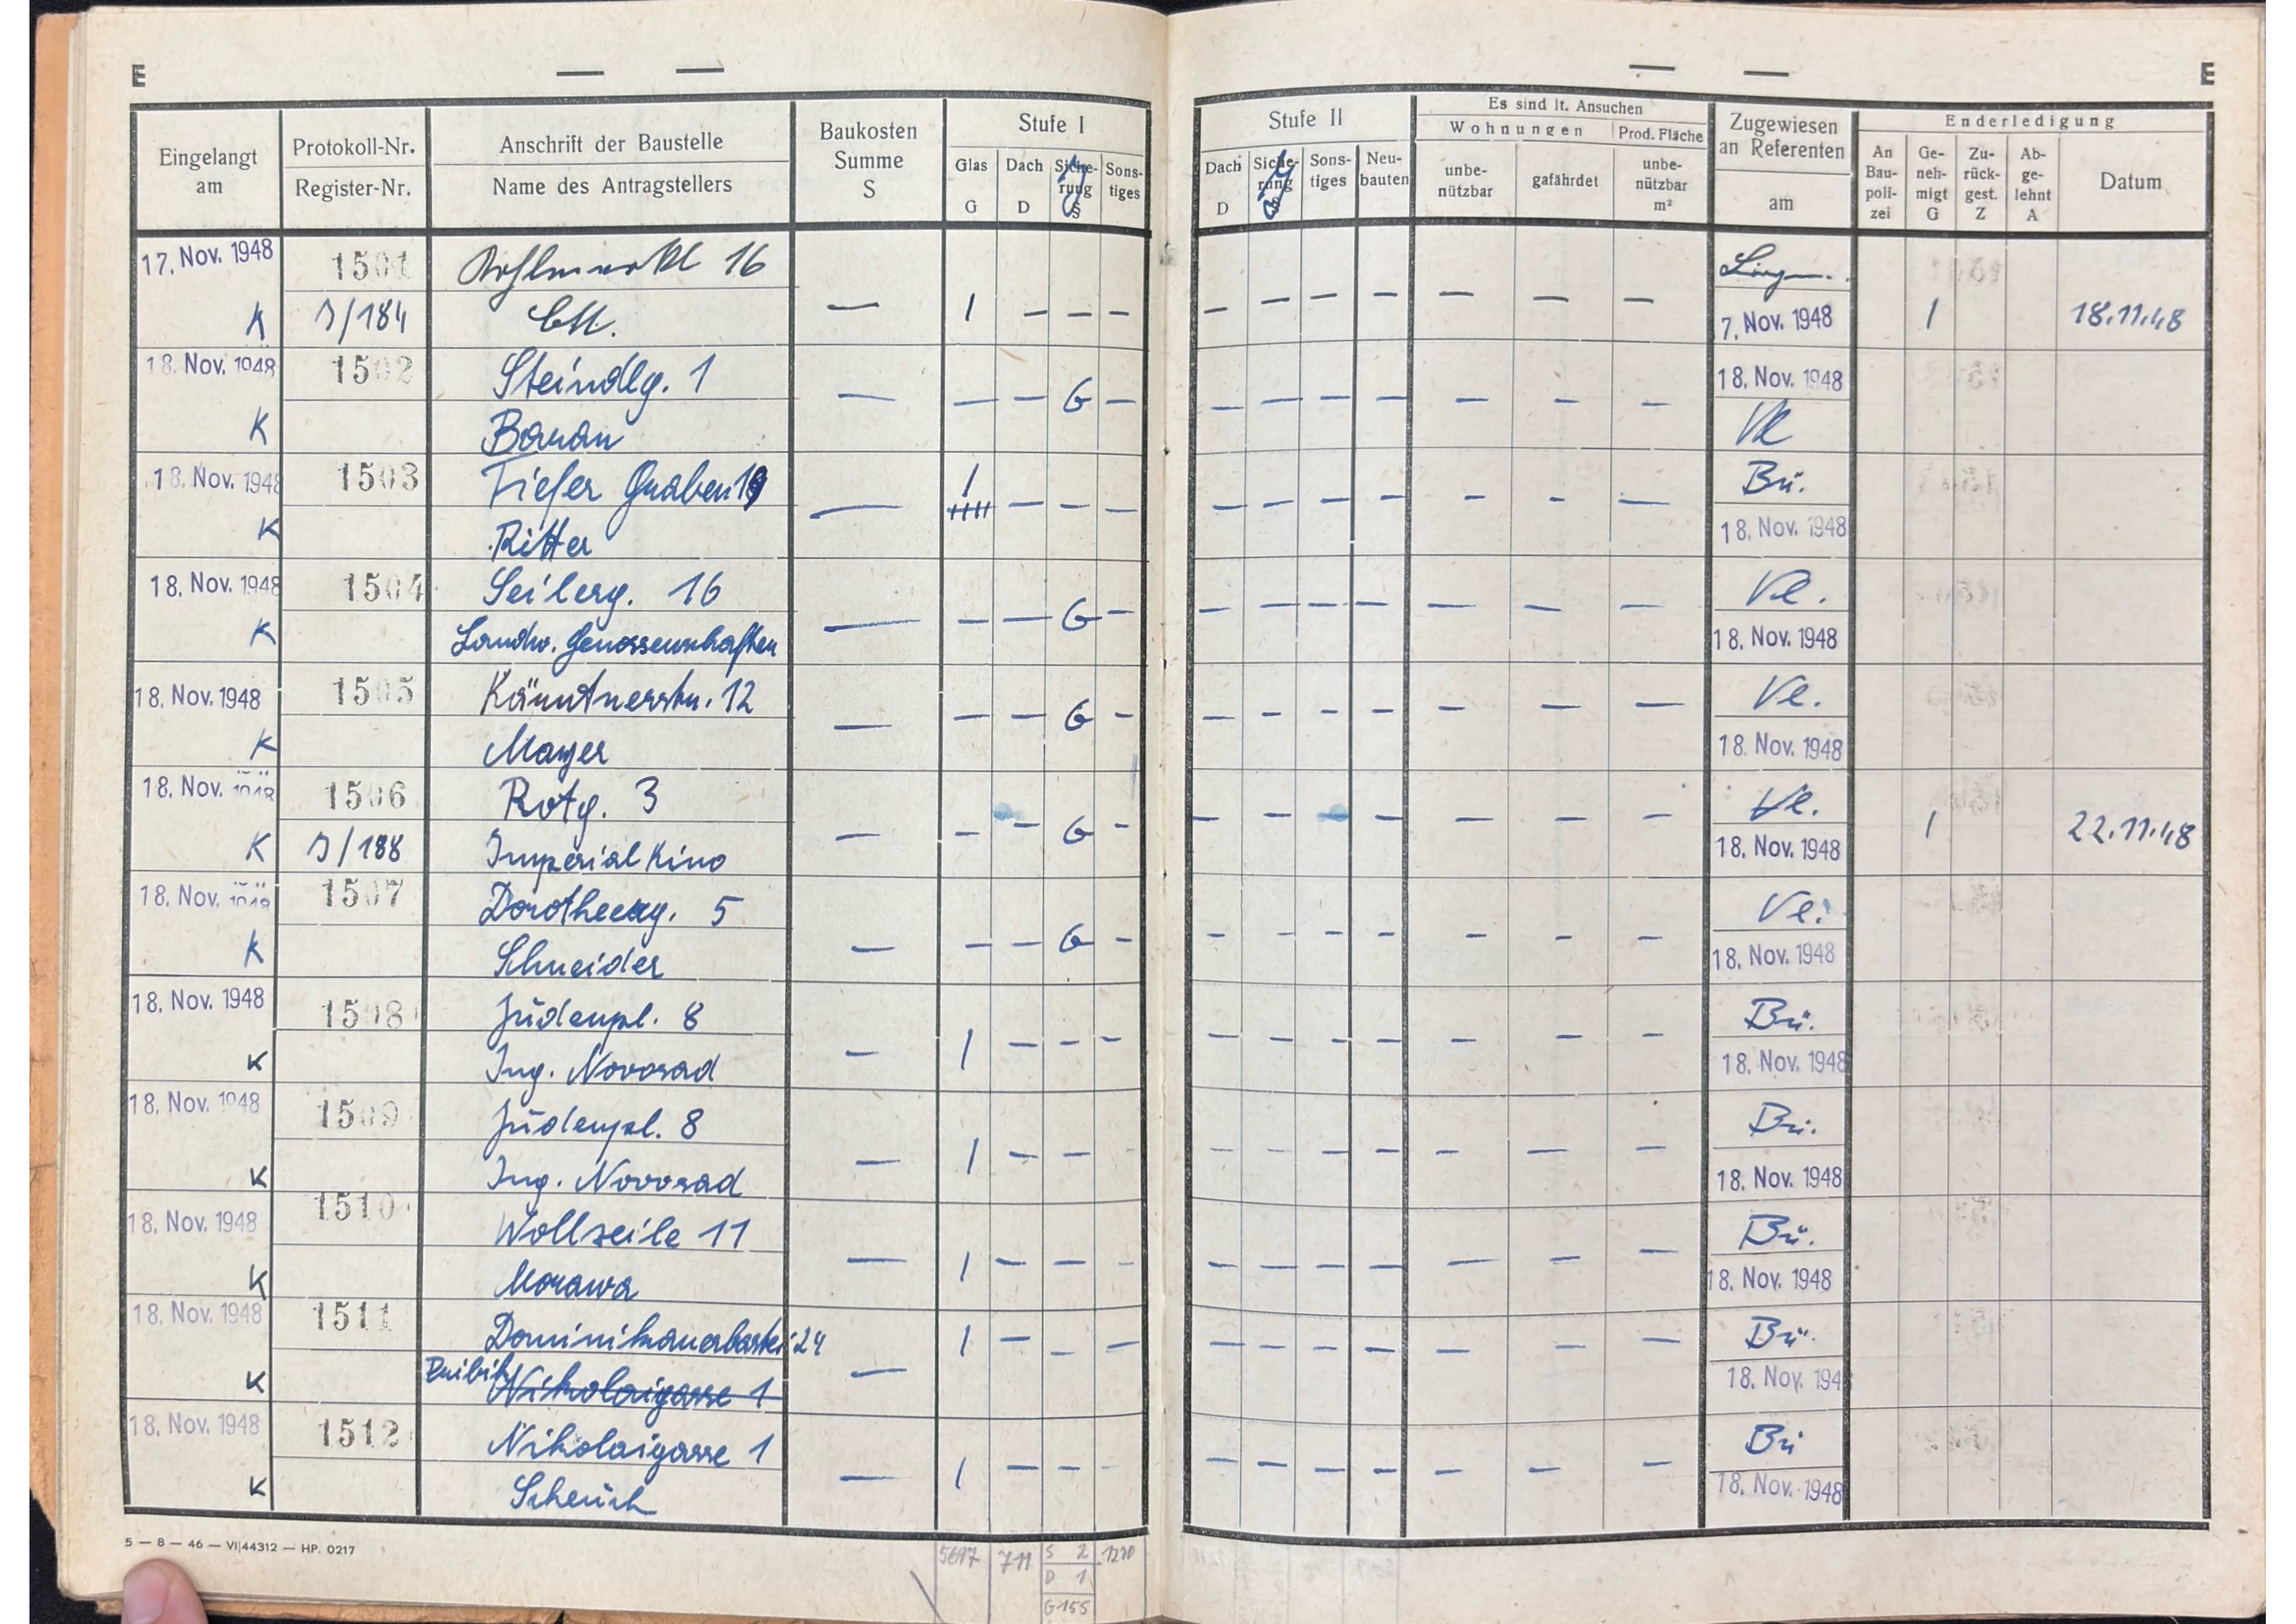 E — — — — E
Eingelangt am
Protokoll-Nr.
Register-Nr.
Anschrift der Baustelle
Name des Antragstellers
Baukosten Summe S
Stufe I
Glas G
Dach D
Siche-rung S
Sons-tiges
Stufe II
Dach D
Siche-rung S
Sons-tiges
Neu-bauten
Es sind lt. Ansuchen
Wohnungen
unbe-nützbar
gefährdet
Prod. Fläche
unbe-nützbar m²
Zugewiesen an Referenten
am
Enderledigung
An Bau-poli-zei
Ge-neh-migt G
Zu-rück-gest. Z
Ab-ge-lehnt A
Datum
17. Nov. 1948 1501 Kohlmarkt 16
K J/184 — / — — — — — — — — — — 7. Nov. 1948 / 18.11.48
18. Nov. 1948 1502 Steindlg. 1 18. Nov. 1948
K Baran — — — G — — — — — — — —
18. Nov. 1948 1503 Tiefer Graben 19 / Bü.
K Ritter — — — — — — — — — — — 18. Nov. 1948
18. Nov. 1948 1504 Seilerg. 16 Ve.
K Landw. Genossenschaften — — — G — — — — — — — — 18. Nov. 1948
18. Nov. 1948 1505 Kärntnerstr. 12 Ve.
K Mayer — — — G — — — — — — — — 18. Nov. 1948
18. Nov. 1948 1506 Rotg. 3 Ve.
K J/188 Imperial Kino — — — G — — — — — — — — 18. Nov. 1948 / 22.11.48
18. Nov. 1948 1507 Dorotheerg. 5 Ve.
K Schneider — — — G — — — — — — — — 18. Nov. 1948
18. Nov. 1948 1508 Judenpl. 8 Bü.
K Ing. Novosad — / — — — — — — — — — — 18. Nov. 1948
18. Nov. 1948 1509 Judenpl. 8 Bü.
K Ing. Novosad — / — — — — — — — — — — 18. Nov. 1948
18. Nov. 1948 1510 Wollzeile 11 Bü.
K Morawa — / — — — — — — — — — — 18. Nov. 1948
18. Nov. 1948 1511 Dominikanerbastei 24 / — — — — — — — — — — Bü.
K Nikolaigasse 1 — 18. Nov. 194
18. Nov. 1948 1512 Nikolaigasse 1 Bü
K — / — — — — — — — — — — 18. Nov. 1948
5 — 8 — 46 — VI|44312 — HP. 0217
5697 711 S 2 1270
D 1
G 155